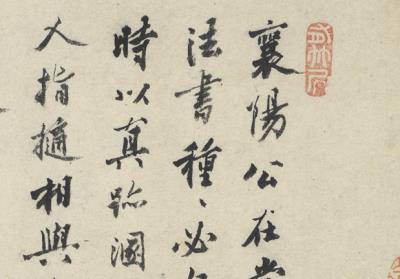 襄陽公在當
法書種〻必
時以真跡溷
人指擿相與